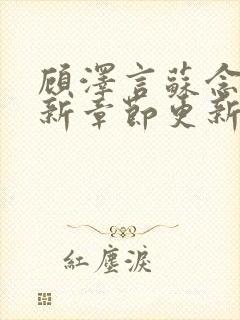 顧澤言蘇念
新章節更新
紅塵淚